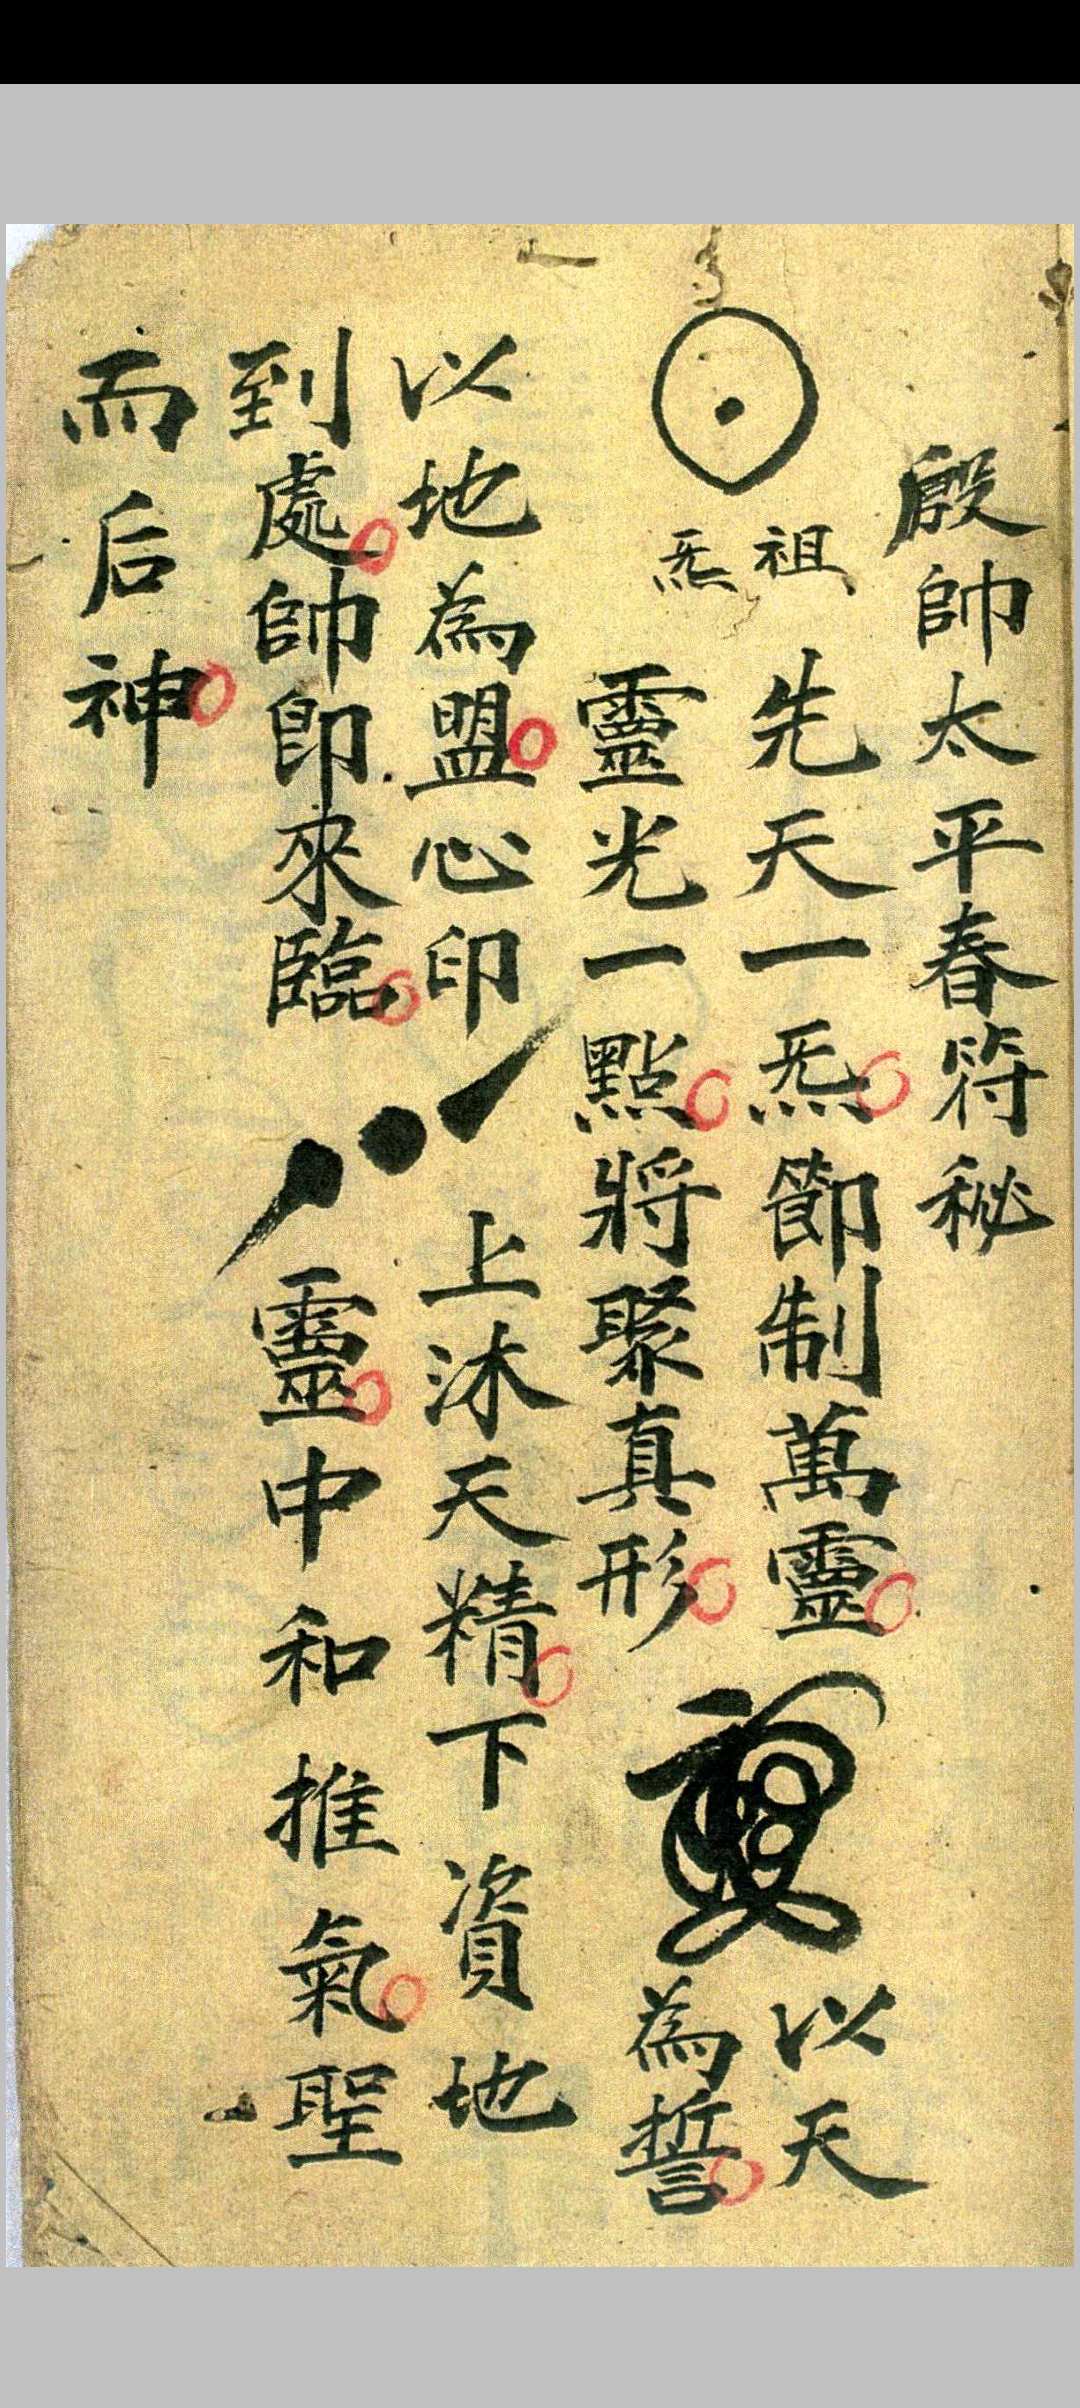 殷帥太平春符秘
祖炁
先天一炁節制萬靈
靈光一點將聚真形
以天
為誓
以地為盟心印
到處帥即來臨
上沐天精下資地
靈中和推氣聖
而后神